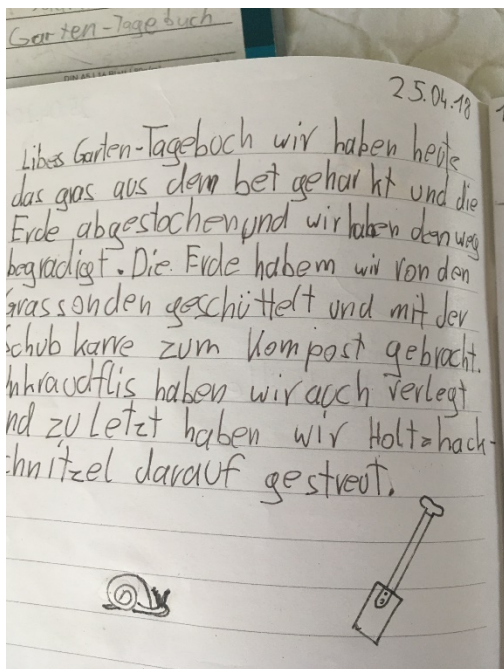 Garten-Tagebuch
25.04.18
Libes Garten-Tageboch wir haben heute
das gras aus dem bet geharkt und die
Erde abgestochen und wir haben den weg
begradigt. Die Erde habem wir von den
Grassonden geschüttelt und mit der
Schubkarre zum Kompost gebracht.
nkraudflis haben wir auch verlegt
nd zu letzt haben wir Holtzhack-
chnitzel darauf gestreut.